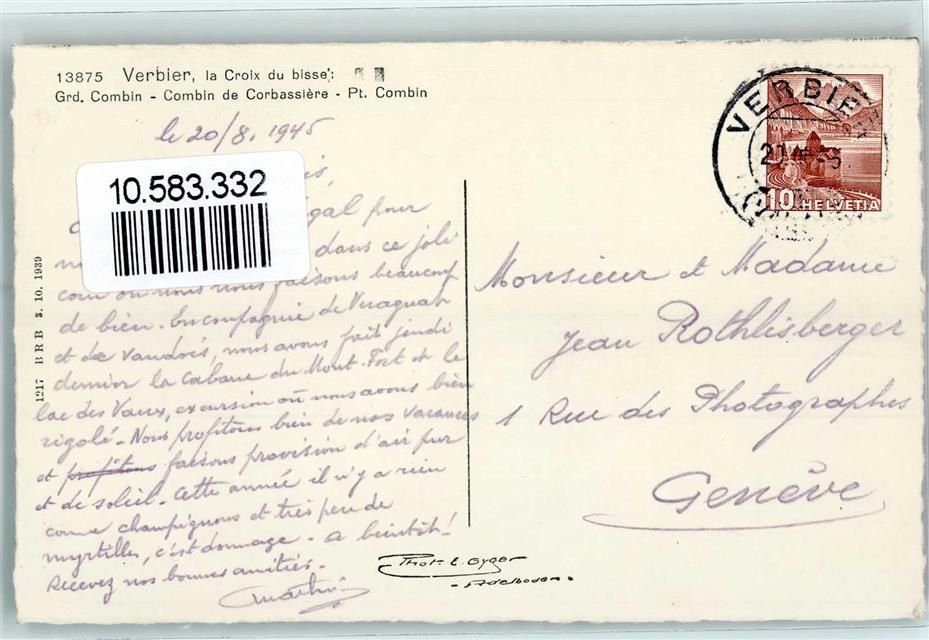 13875 Verbier, la Croix du bisse:
Grd. Combin - Combin de Corbassière - Pt. Combin
le 20/8. 1945
10.583.332
égal pour
dans ce joli
coin où nous nous faisons beaucoup
de bien. En compagnie de
et de Vaudois, nous avons fait jeudi
dernier la Cabane du Mont-Fort et le
lac des Vaux, excursion où nous avons bien
rigolé. Nous profitons bien de nos vacances
et profitons faisons provision d'air pur
et de soleil. Cette année il n'y a rien
comme champignons et très peu de
myrtilles, c'est dommage. A bientôt!
Recevez nos bonnes amitiés.
1217 BRB 3. 10. 1939
VERBIER
10 HELVETIA
Monsieur et Madame
Jean Rothlisberger
1 Rue des Photographes
Genève
Phot. E. Gyger
Adelboden.